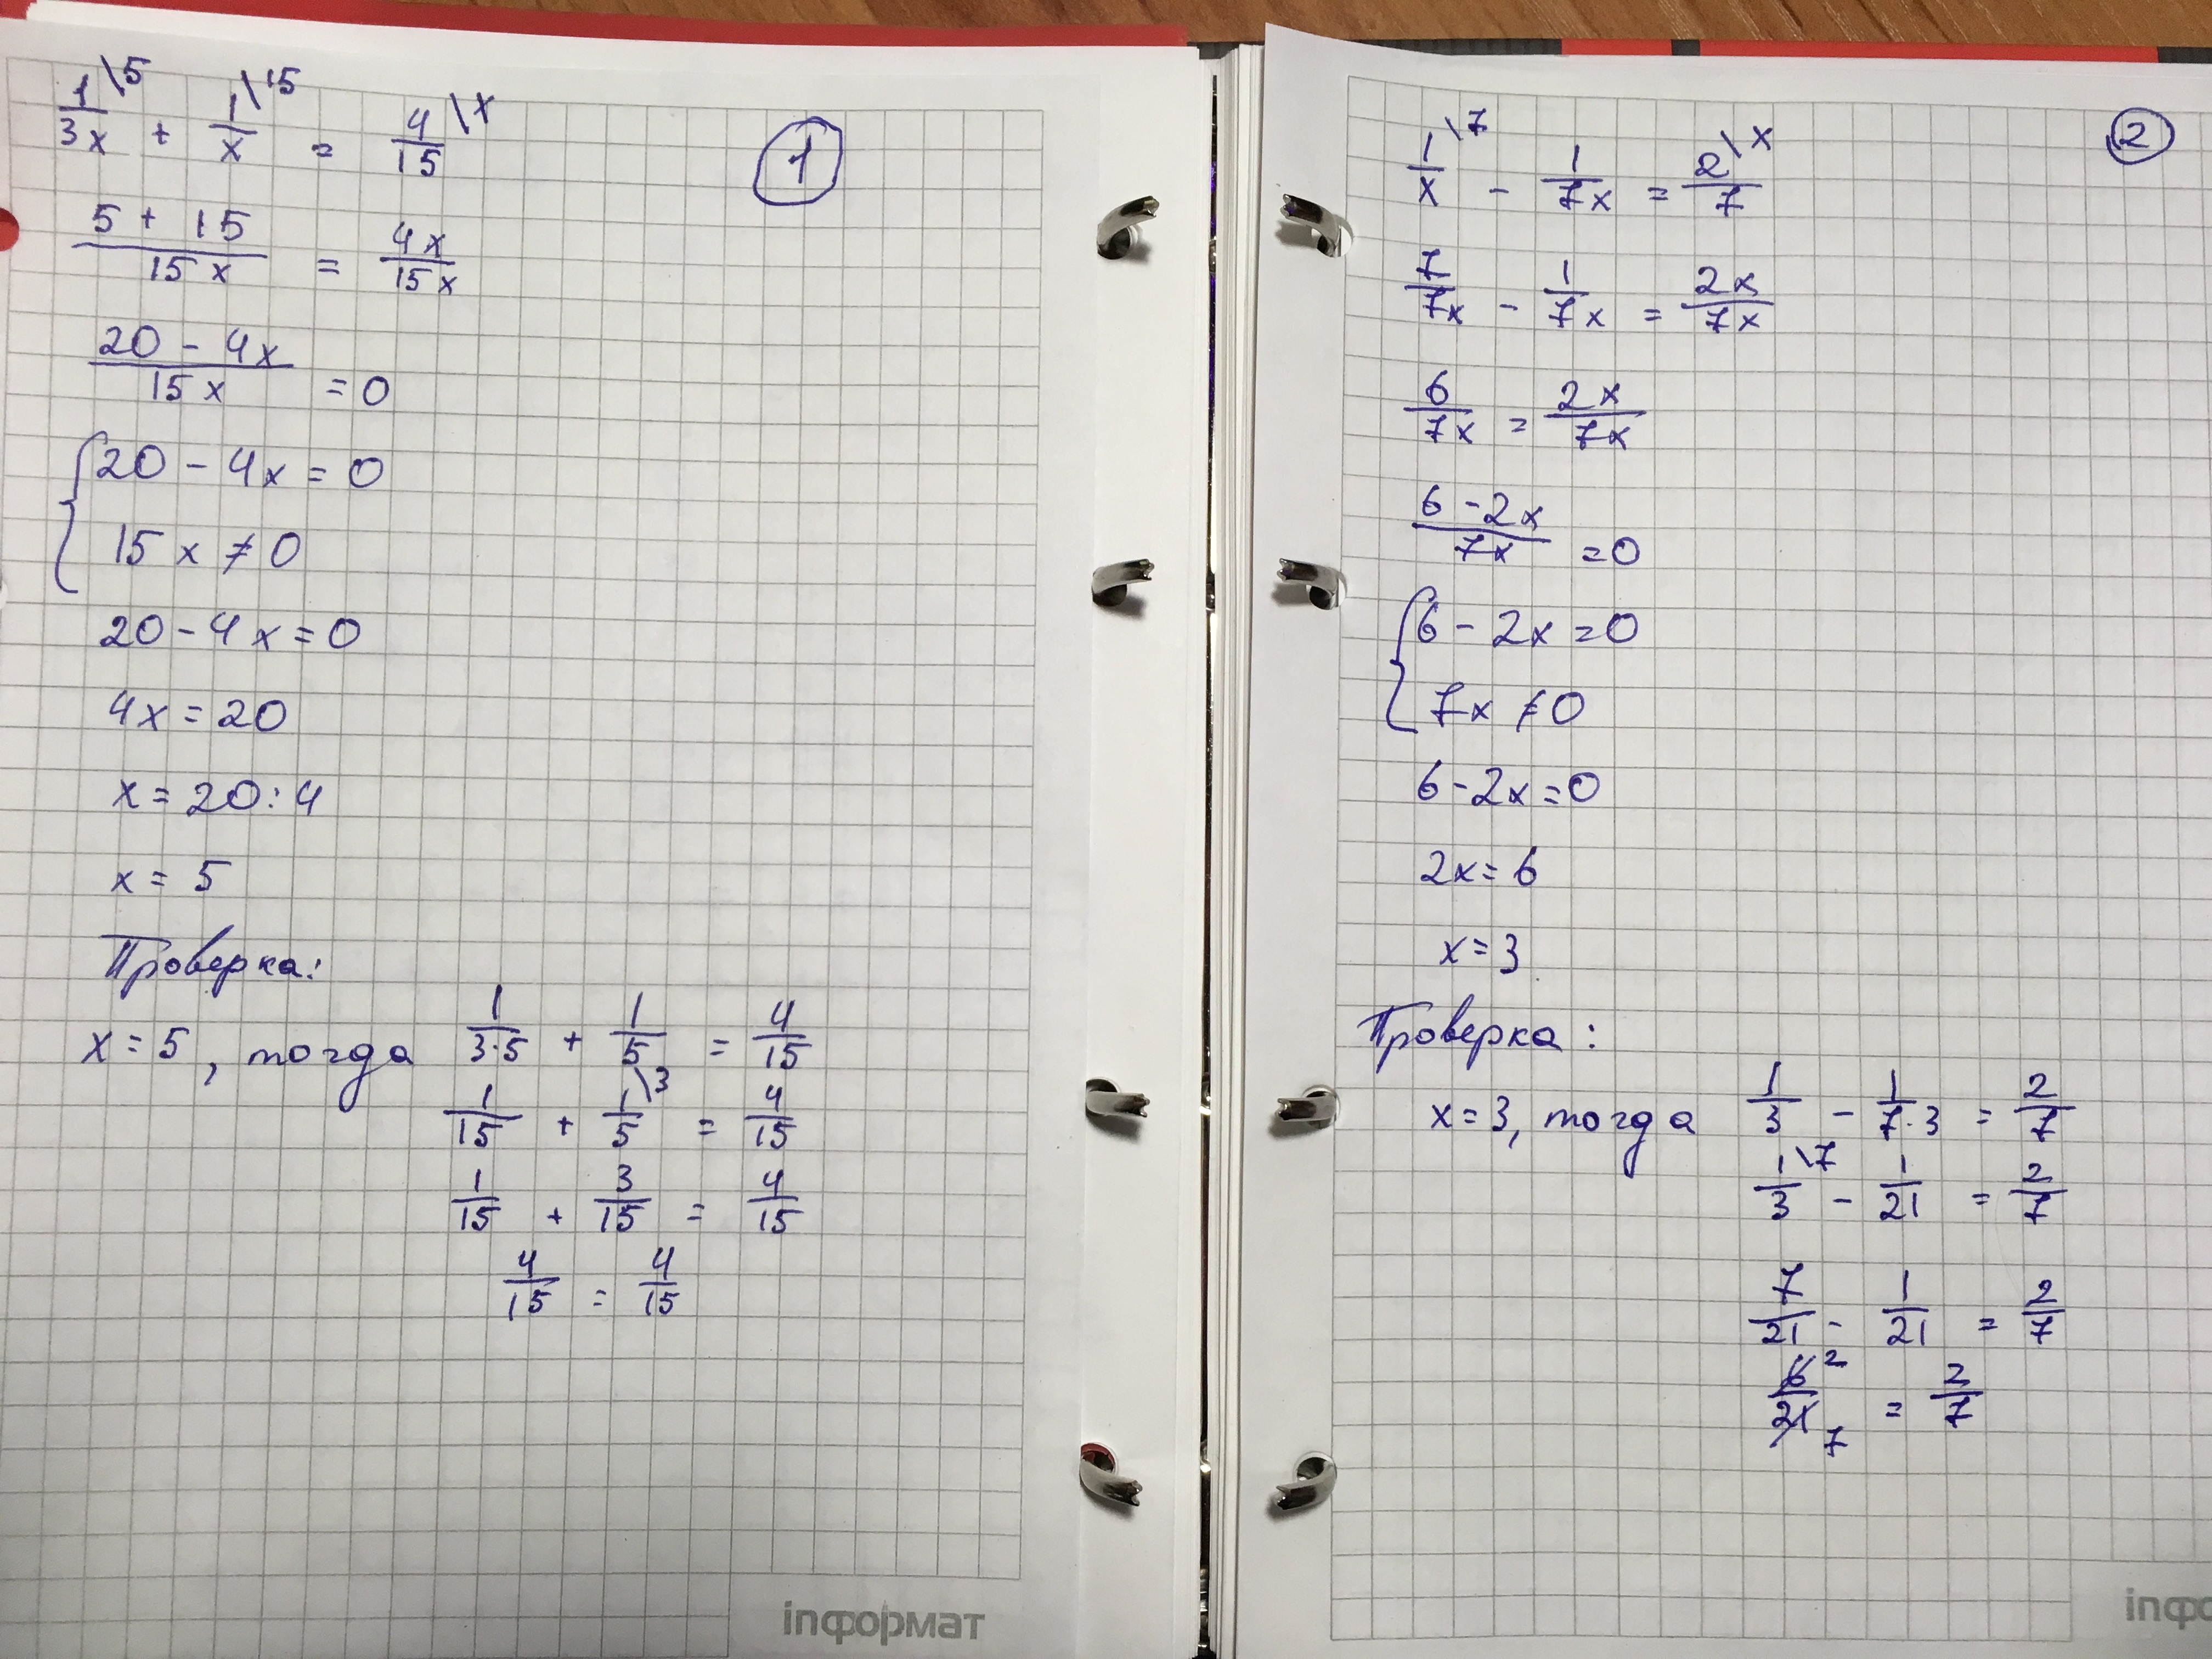 1
1/3x \5 + 1/x \15 = 4/15 \x
5 + 15/15x = 4x/15x
20 - 4x/15x = 0
{20 - 4x = 0
15x ≠ 0
20 - 4x = 0
4x = 20
x = 20 : 4
x = 5
Проверка:
x = 5, тогда 1/3·5 + 1/5 = 4/15
1/15 + 1/5 \3 = 4/15
1/15 + 3/15 = 4/15
4/15 = 4/15
inформат
2
1/x \7 - 1/7x = 2/7 \x
7/7x - 1/7x = 2x/7x
6/7x = 2x/7x
6 - 2x/7x = 0
{6 - 2x = 0
7x ≠ 0
6 - 2x = 0
2x = 6
x = 3
Проверка:
x = 3, тогда 1/3 - 1/7·3 = 2/7
1/3 \7 - 1/21 = 2/7
7/21 - 1/21 = 2/7
6 2/21 7 = 2/7
inфо